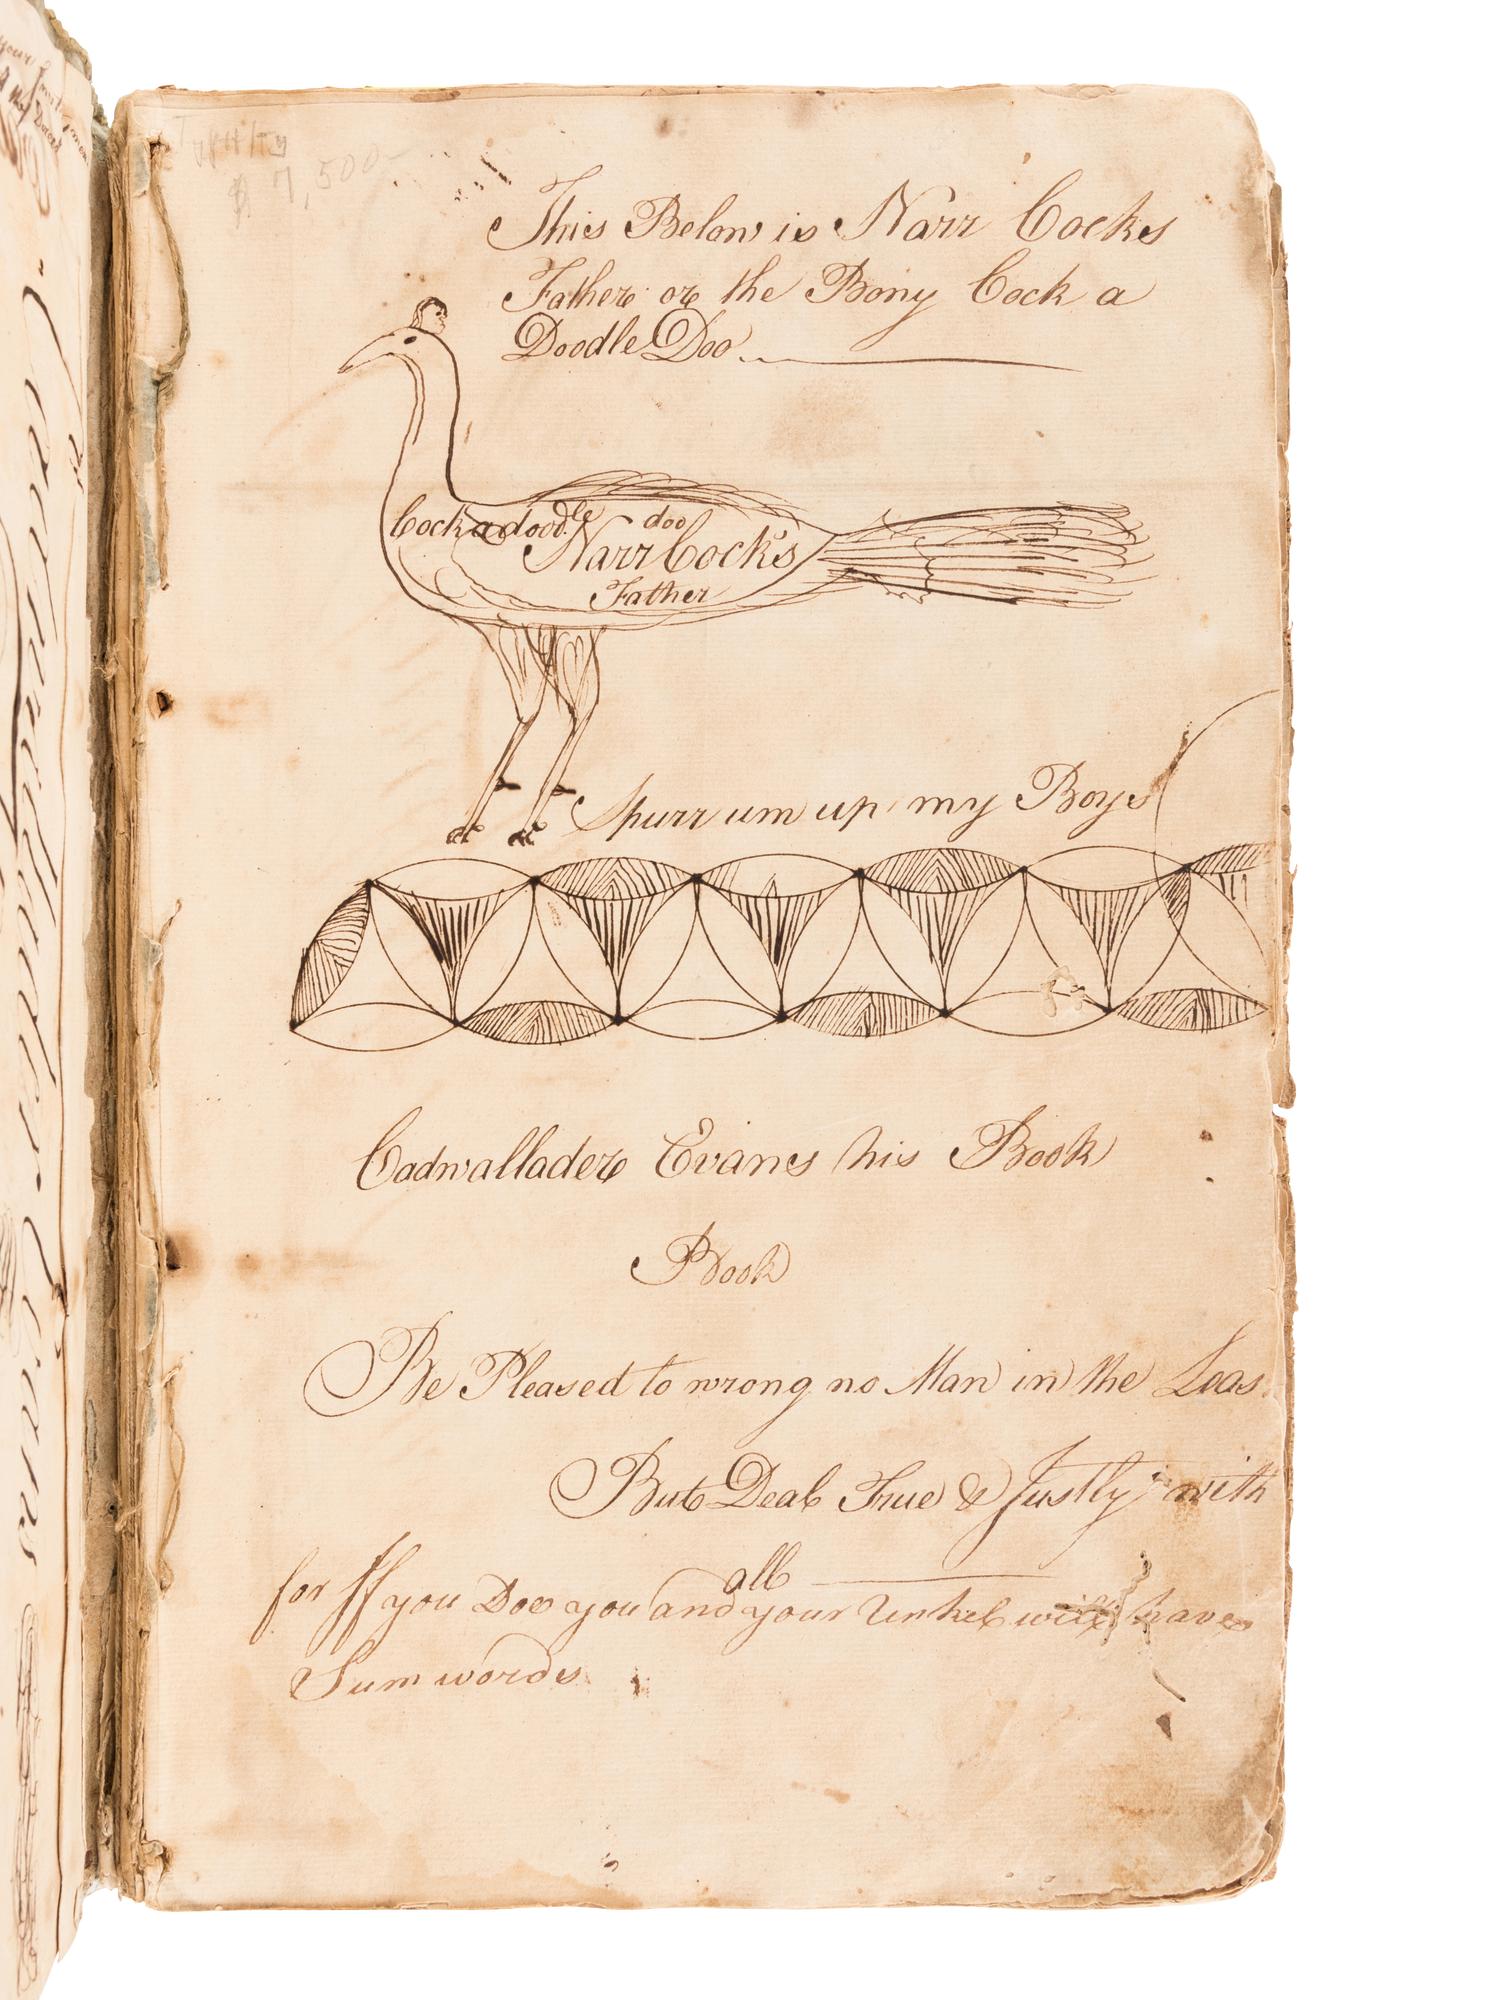 $7,500-
This Below is Narr Cocks
Father or the Bony Cock a
Doodle Doo
Cock a doodle doo
Narr Cock's
Father
Spurr um up my Boys
Cadwallader Evans his Book
Book
Be Pleased to wrong no Man in the Leas
But Deal True & Justly with
all
for If you Doe you and your Unkel will have
Sum words
Cadwallader Evans